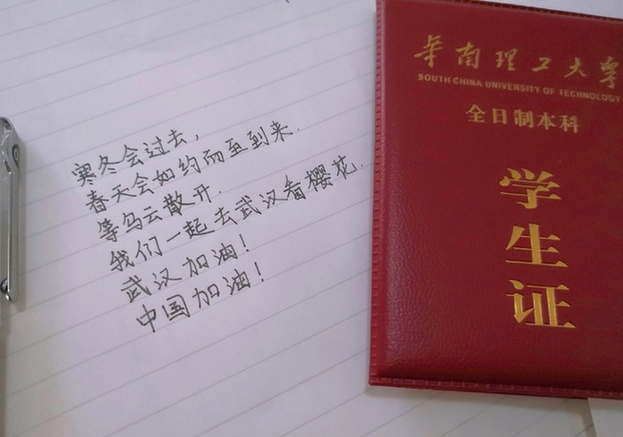 寒冬会过去,
春天会如约而至到来.
等乌云散开.
我们一起去武汉看樱花.
武汉加油!
中国加油!
华南理工大学
SOUTH CHINA UNIVERSITY OF TECHNOLOGY
全日制本科
学
生
证